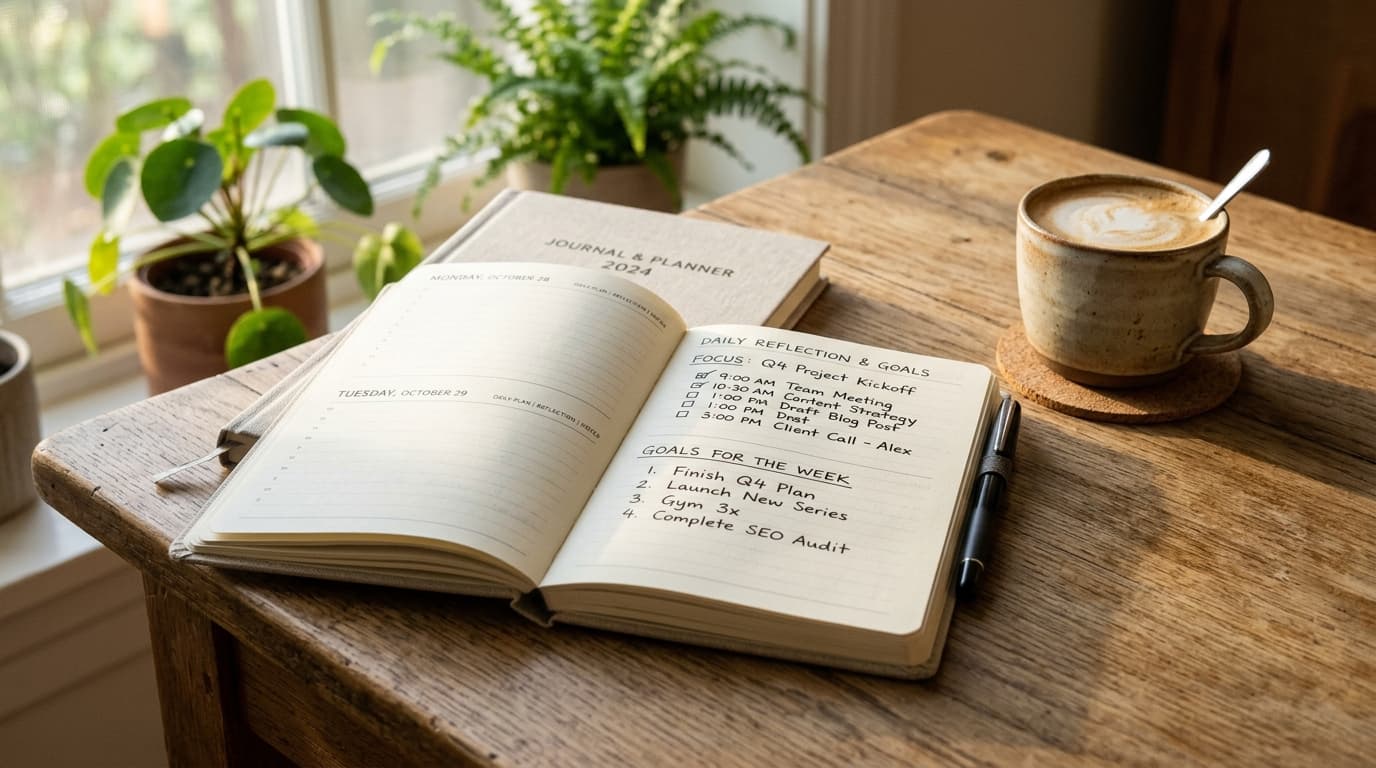 JOURNAL & PLANNER
2024
MONDAY, OCTOBER 28
DAILY PLAN | REFLECTION |
TUESDAY, OCTOBER 29
DAILY PLAN | REFLECTION |
DAILY REFLECTION & GOALS
FOCUS: Q4 Project Kickoff
9:00 AM Team Meeting
10:30 AM Content Strategy
1:00 PM Draft Blog Post
1:00 PM
3:00 PM Client Call - Alex
GOALS FOR THE WEEK
1. Finish Q4 Plan
2. Launch New Series
3. Gym 3x
4. Complete SEO Audit